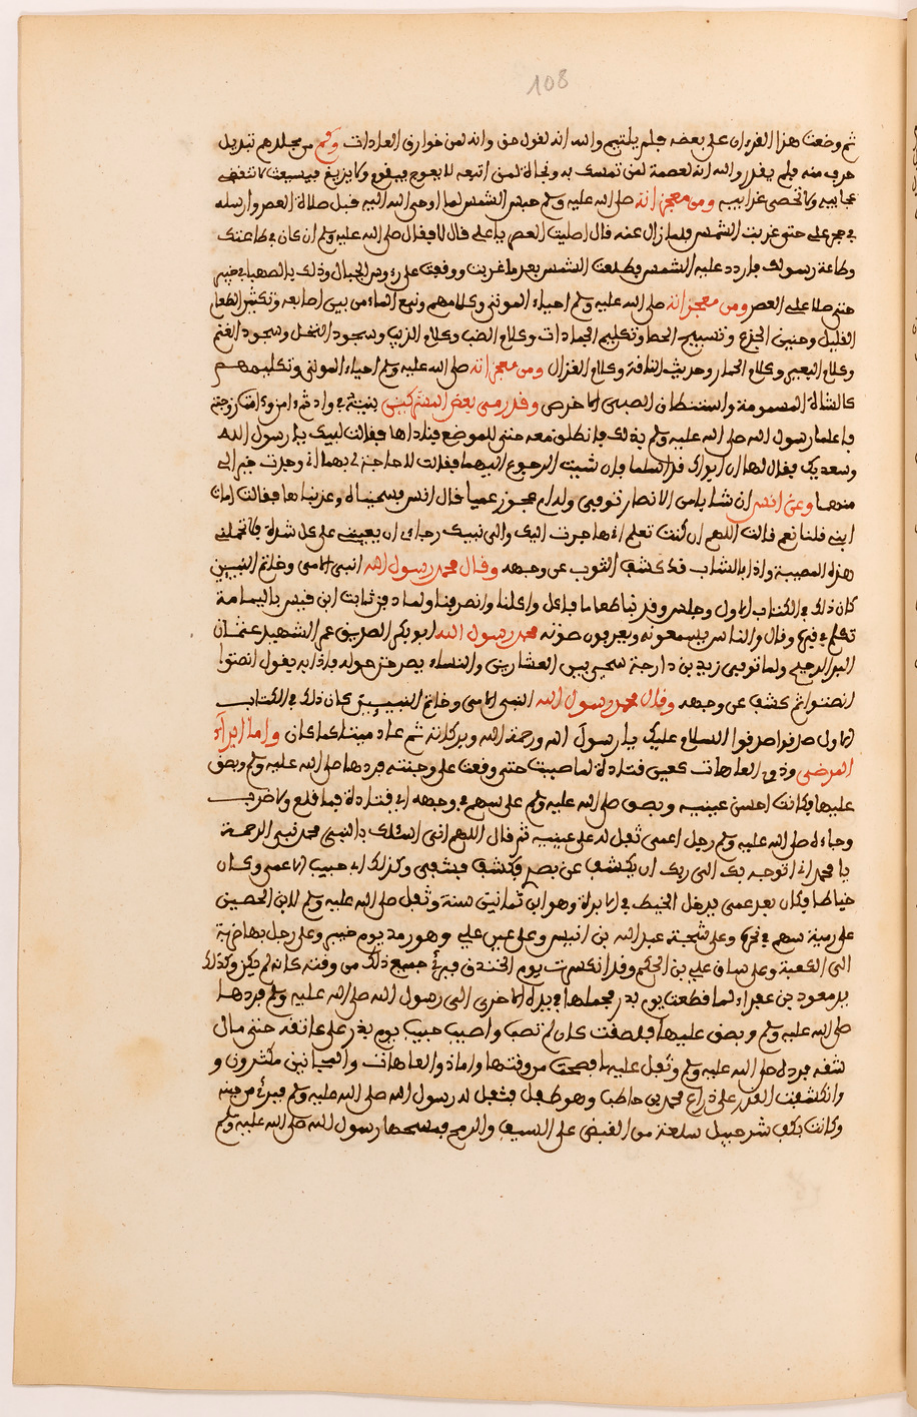 108
ثم وضعت هذا القرءان على بعضه فلم يلتيم والله انه لقول حق وانه لمن خوارق العادات وكم من مجلدهم تبديل
حرف منه فلم يقدر والله انه لعصمة لمن تمسك به ونجاة لمن اتبعه لا يعوج فيقوم ولا يزيغ فيستعتب لا تنقضي
عجايبه ولا تحصى غرايبه ومن معجزاته صلى الله عليه وسلم حبس الشمس لما اوحى الله اليه قبل صلاة العصر وارسله
في حجر علي حتى غربت الشمس فلما زال عنه قال اصليت العصر يا علي قال لا فقال صلى الله عليه وسلم ان كان في طاعتك
وطاعة رسولك فاردد عليه الشمس فطلعت الشمس بعد ما غربت ووقعت على رءوس الجبال وذلك بالصهباء في خيبر
حتى صلا علي العصر ومن معجزاته صلى الله عليه وسلم احياء الموتى وكلامهم ونبع الماء من بين اصابعه وتكثير الطعام
القليل وحنين الجذع وتسبيح الحصا وتكليم الجمادات وكلام الضب وكلام الذيب وسجود النخل وسجود الغنم
وكلام البعير وكلام الحمار وحديث الناقة وكلام الغزال ومن معجزاته صلى الله عليه وسلم احياء الموتى وتكليمهم
كالشاة المسمومة واستنطاق الصبي الاخرص وقد رمى بعض المشركين بنيته في واد ثم امن
فاعلما رسول الله صلى الله عليه وسلم بذلك فانطلق معه حتى للموضع فناداها فقالت لبيك يا رسول الله
وسعديك فقال لها ان ابواك قد اسلما فان شيت الرجوع اليهما فقالت لا حاجة لي بهما اني وجدت خير الي
منهما وعن انس ان شابا من الانصار توفي وله ام عجوز عمياء قال انس فسجيناه وعزيناها فقالت امات
ابني قلنا نعم قالت اللهم ان كنت تعلم اني هاجرت اليك والى نبيك رجاء ان يعينني على كل شدة فلا تحملني
هذه المصيبة واذا بالشاب قد كشف الثوب عن وجهه وقال محمد رسول الله النبي الامي وخاتم النبيين
كان ذلك في الكتاب الاول وجلس وقربنا طعاما فاكل واكلنا وانصرفنا ولما دفن ثابت ابن قيس باليمامة
تكلم في قبره وقال والناس يسمعونه ويعرفون صوته محمد رسول الله ابو بكر الصديق عمر الشهيد عثمان
البر الرحيم ولما توفي زيد بن خارجة سجي بين العشاءين والنساء يصرخن حوله فاذا به يقول انصتوا
انصتوا ثم كشف عن وجهه وقال محمد رسول الله النبي الامي وخاتم النبيين كان ذلك في الكتاب
الاول صدقوا صدقوا السلام عليك يا رسول الله ورحمة الله وبركاته ثم عاد ميتا كما كان واما ابراء
المرضى وذوي العاهات كعين قتادة لما اصيبت حتى وقعت على وجنته فردها صلى الله عليه وسلم وبصق
عليها فكانت احسن عينيه وبصق صلى الله عليه وسلم على سهم في وجهه ابي قتادة فما قلع ولا ضرب
وجاءه صلى الله عليه وسلم رجل اعمى ثفل له على عينيه ثم قال اللهم اني اسئلك بالنبي محمد نبي الرحمة
يا محمد اني اتوجه بك الى ربك ان يكشف عن بصري فكشف فشفي وكذلك ابي حبيب الاعمى وكان
خياطا فكان بعد عمى يدخل الخيط في الابراة وهو ابن ثمانين سنة وثفل صلى الله عليه وسلم لابن الحصين
على رمية سهم في نحره وعلى شجة عبد الله بن انيس وعلى عين علي وهو رمد يوم خيبر وعلى رجل بها ضربة
الى الكعبة وعلى ساق علي بن الحكم وقد انكسرت يوم الخندق فبرئ جميع ذلك من وقته كانه لم يكن وكذلك
يد معود بن عفراء لما قطعت يوم بدر فحملها في يده الاخرى الى رسول الله صلى الله عليه وسلم فردها
صلى الله عليه وسلم وبصق عليها فلصقت كان لم تصب واصيب حبيب يوم بدر على عاتقه حتى مال
شقه فرده صلى الله عليه وسلم وثفل عليها فصحت من وقتها واما ذو العاهات والمجانين فكثيرون و
وانكشفت القدر على ذراع محمد بن حاطب وهو طفل فثفل له رسول الله صلى الله عليه وسلم فبرئ من حينه
وكانت بكف شرحبيل سلعة من القبض على السيف والرمح فمسحها رسول الله صلى الله عليه وسلم